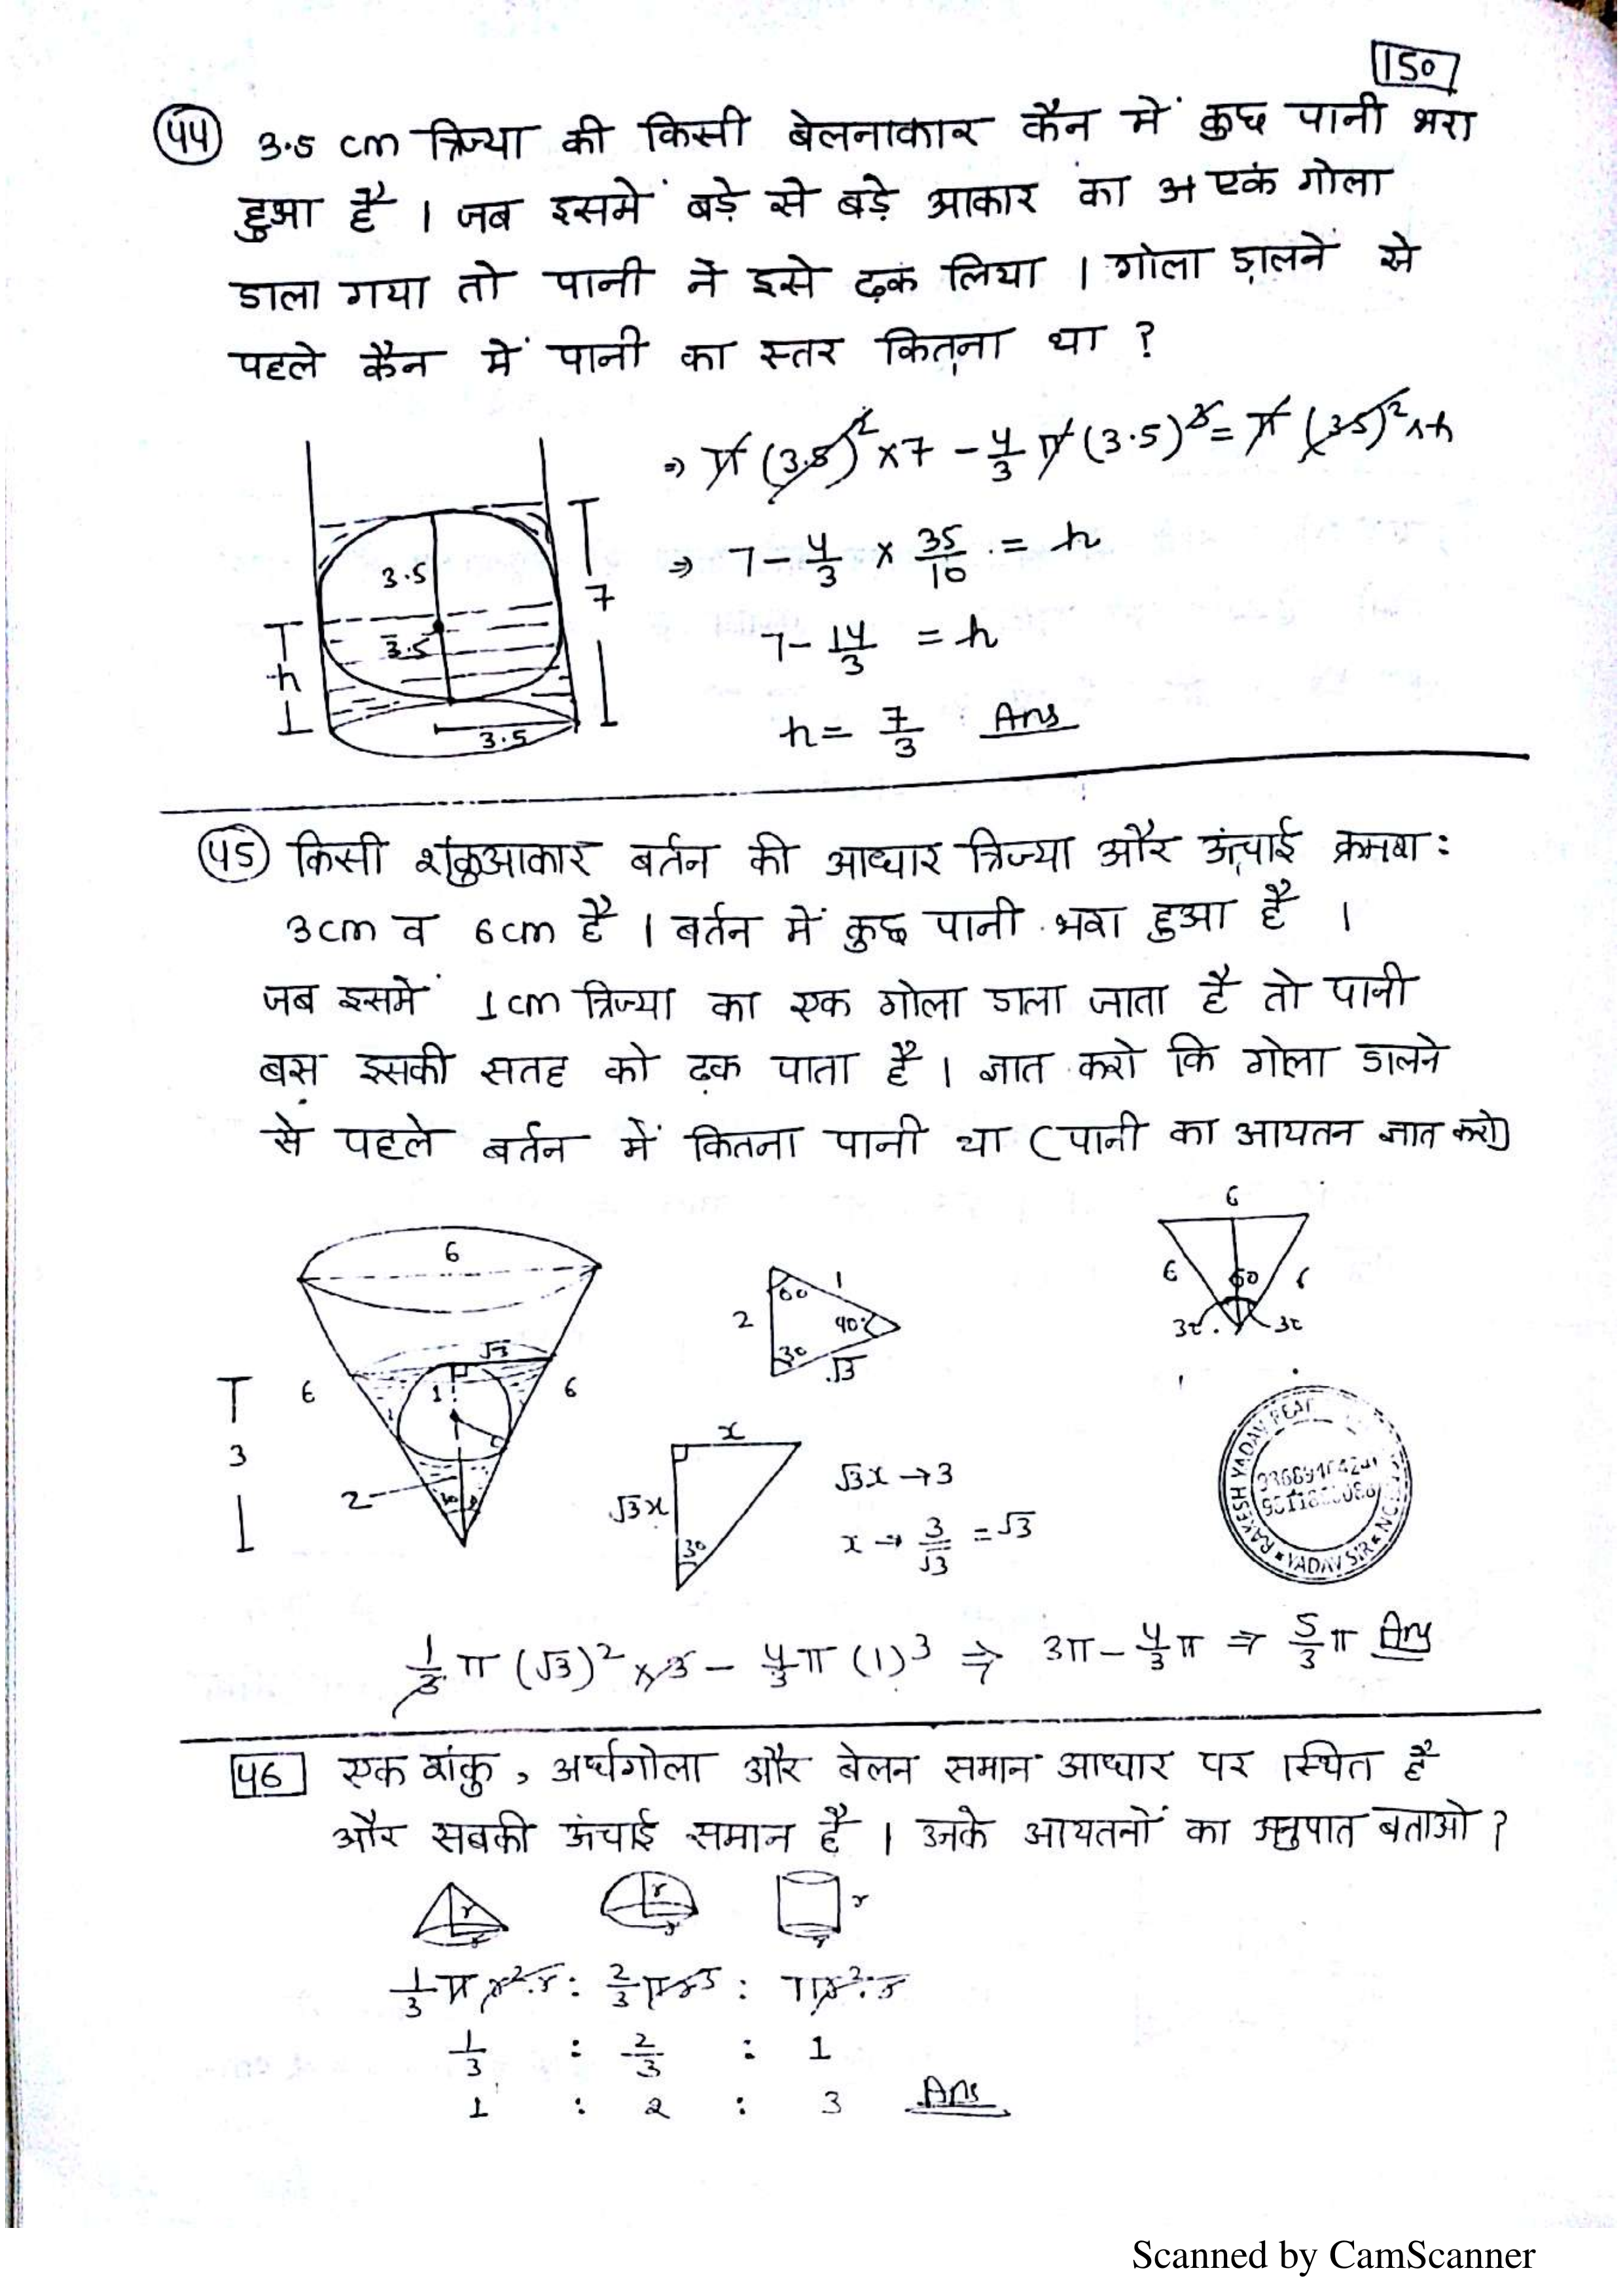 150
44 3.5 cm त्रिज्या की किसी बेलनाकार कैन में कुछ पानी भरा
हुआ है । जब इसमें बड़े से बड़े आकार का एक गोला
डाला गया तो पानी ने इसे ढ़क लिया । गोला ड़ालने से
पहले कैन में पानी का स्तर कितना था ?
⇒ π (3.5)² × 7 − 4/3 π (3.5)³ = π (3.5)² × h
⇒ 7 − 4/3 × 35/10 = h
7 − 14/3 = h
h = 7/3 Ans
3.5
3.5
3.5
h
7
45 किसी शंकुआकार बर्तन की आधार त्रिज्या और ऊंचाई क्रमशः
3cm व 6cm है । बर्तन में कुछ पानी भरा हुआ है ।
जब इसमें 1cm त्रिज्या का एक गोला डाला जाता है तो पानी
बस इसकी सतह को ढक पाता है । ज्ञात करो कि गोला डालने
से पहले बर्तन में कितना पानी था (पानी का आयतन ज्ञात करो)
6
√3
1
6
6
3
2
60
1
2
90
30
√3
6
6
60
6
30
30
x
√3x
30
√3x → 3
x → 3/√3 = √3
RAKESH YADAV
YADAV SIR
1/3 π (√3)² × 3 − 4/3 π (1)³ ⇒ 3π − 4/3 π ⇒ 5/3 π Ans
46 एक शंकु, अर्धगोला और बेलन समान आधार पर स्थित है
और सबकी ऊंचाई समान है । उनके आयतनों का अनुपात बताओ ?
r r r
r r r
1/3 π r².r : 2/3 π r³ : π r².r
1/3 : 2/3 : 1
1 : 2 : 3 Ans
Scanned by CamScanner